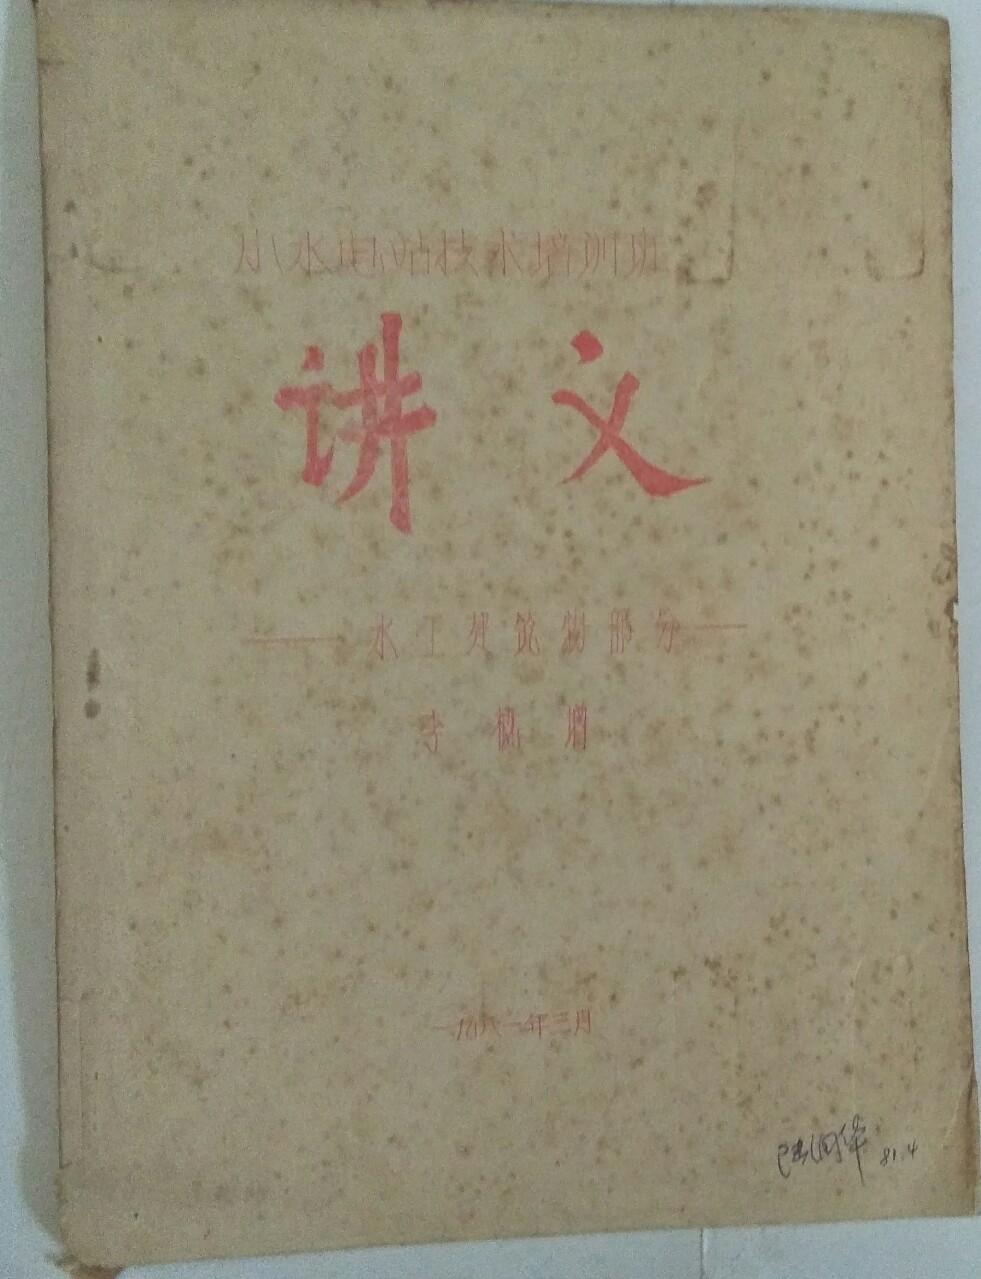 小水电站技术培训班
讲义
——水工建筑物部分——
李
一九八一年三月
81.4